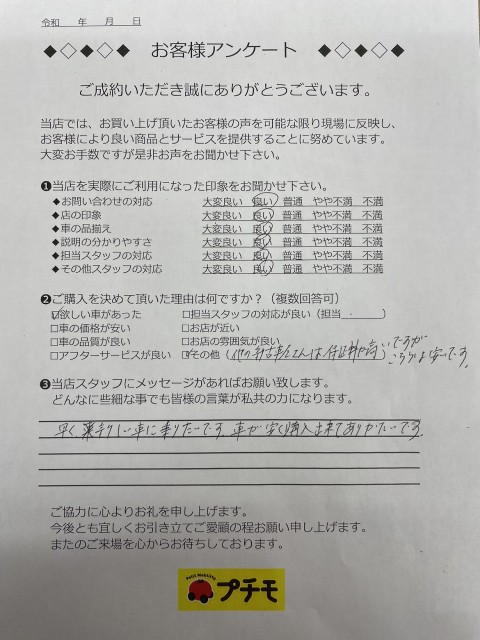 令和　　年　　月　　日
◆◇◆◇◆　お客様アンケート　◆◇◆◇◆
ご成約いただき誠にありがとうございます。
当店では、お買い上げ頂いたお客様の声を可能な限り現場に反映し、
お客様により良い商品とサービスを提供することに努めています。
大変お手数ですが是非お声をお聞かせ下さい。
❶当店を実際にご利用になった印象をお聞かせ下さい。
◆お問い合わせの対応　大変良い　良い　普通　やや不満　不満
◆店の印象　大変良い　良い　普通　やや不満　不満
◆車の品揃え　大変良い　良い　普通　やや不満　不満
◆説明の分かりやすさ　大変良い　良い　普通　やや不満　不満
◆担当スタッフの対応　大変良い　良い　普通　やや不満　不満
◆その他スタッフの対応　大変良い　良い　普通　やや不満　不満
❷ご購入を決めて頂いた理由は何ですか？（複数回答可）
☑欲しい車があった　□担当スタッフの対応が良い（担当　．　）
□車の価格が安い　□お店が近い
□車の品質が良い　□お店の雰囲気が良い
□アフターサービスが良い　☑その他（他の中古車屋さんは保証料が高いですが
こちらは安いです。
❸当店スタッフにメッセージがあればお願い致します。
どんなに些細な事でも皆様の言葉が私共の力になります。
早く、薬字りい車に乗りたいです。車が安く購入出来てありがたいです。
ご協力に心よりお礼を申し上げます。
今後とも宜しくお引き立てご愛顧の程お願い申し上げます。
またのご来場を心からお待ちしております。
Petit Mobility
プチモ